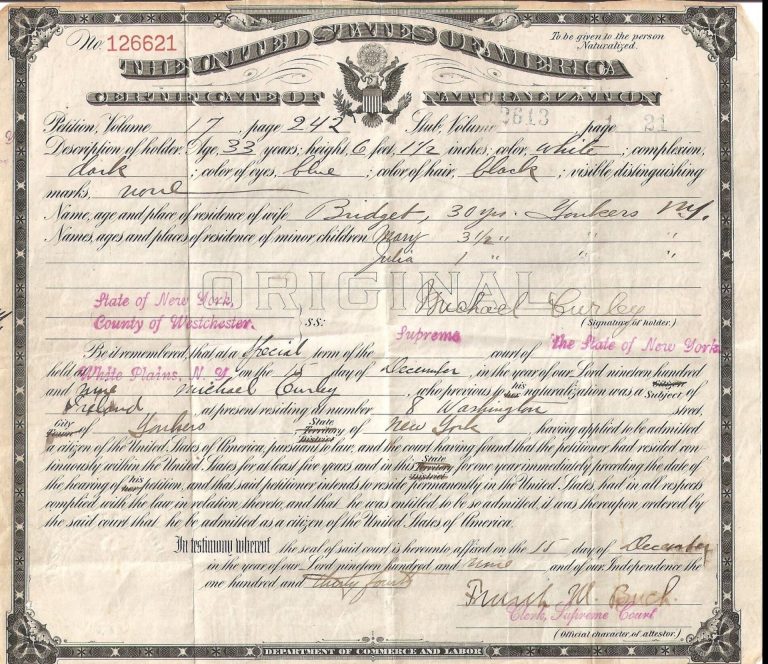 No. 126621
To be given to the person Naturalized.
THE UNITED STATES OF AMERICA
CERTIFICATE OF NATURALIZATION
Petition, Volume 17, page 242 Stub, Volume 3613 page 1 21
Description of holder: Age, 33 years; height, 6 feet, 1 1/2 inches; color, white; complexion,
dark; color of eyes, blue; color of hair, black; visible distinguishing
marks, none
Name, age and place of residence of wife Bridget, 30 yrs. Yonkers N.Y.
Names, ages and places of residence of minor children Mary 3 1/2 " " "
Julia 1 " " "
ORIGINAL
State of New York,
County of Westchester. ss:
Michael Curley
(Signature of holder.)
Be it remembered, that at a Special term of the Supreme court of The State of New York
held at White Plains, N.Y. on the 15 day of December, in the year of our Lord nineteen hundred
and nine Michael Curley, who previous to his her naturalization was a Subject of
Ireland, at present residing at number 8 Washington street,
City of Yonkers State Territory District of New York having applied to be admitted
a citizen of the United States of America, pursuant to law, and the court having found that the petitioner had resided con-
tinuously within the United States for at least five years and in this State Territory District for one year immediately preceding the date of
the hearing of his her petition, and that said petitioner intends to reside permanently in the United States, had in all respects
complied with the law in relation thereto, and that he was entitled to be so admitted, it was thereupon ordered by
the said court that he be admitted as a citizen of the United States of America.
In testimony whereof the seal of said court is hereunto affixed on the 15 day of December
in the year of our Lord nineteen hundred and nine and of our Independence the
one hundred and thirty fourth
Frank M. Buck
Clerk, Supreme Court
(Official character of attestor.)
DEPARTMENT OF COMMERCE AND LABOR